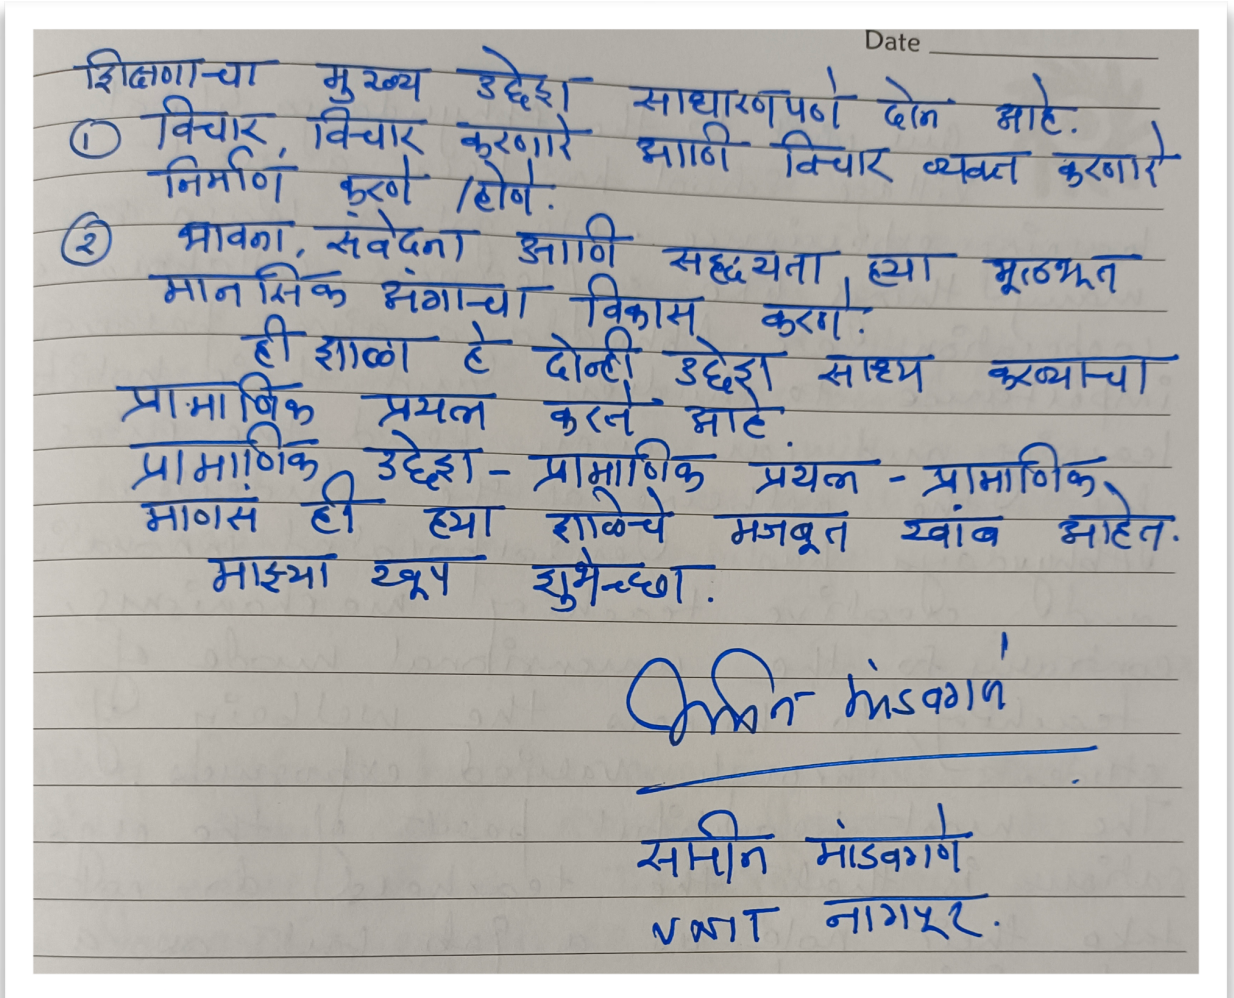 Date
शिक्षणाचा मुख्य उद्देश साधारणपणे दोन आहे.
① विचार, विचार करणारे आणि विचार व्यक्त करणारे
निर्माण करणे /होणे.
② भावना, संवेदना आणि सहृदयता, ह्या मूलभूत
मानसिक अंगाचा विकास करणे.
ही शाळा हे दोन्ही उद्देश साध्य करण्याचा
प्रामाणिक प्रयत्न करत आहे.
प्रामाणिक उद्देश - प्रामाणिक प्रयत्न - प्रामाणिक
माणसं ही ह्या शाळेचे मजबूत खांब आहेत.
माझ्या खूप शुभेच्छा.
मांडवगणे
मांडवगणे
VNIT नागपूर.